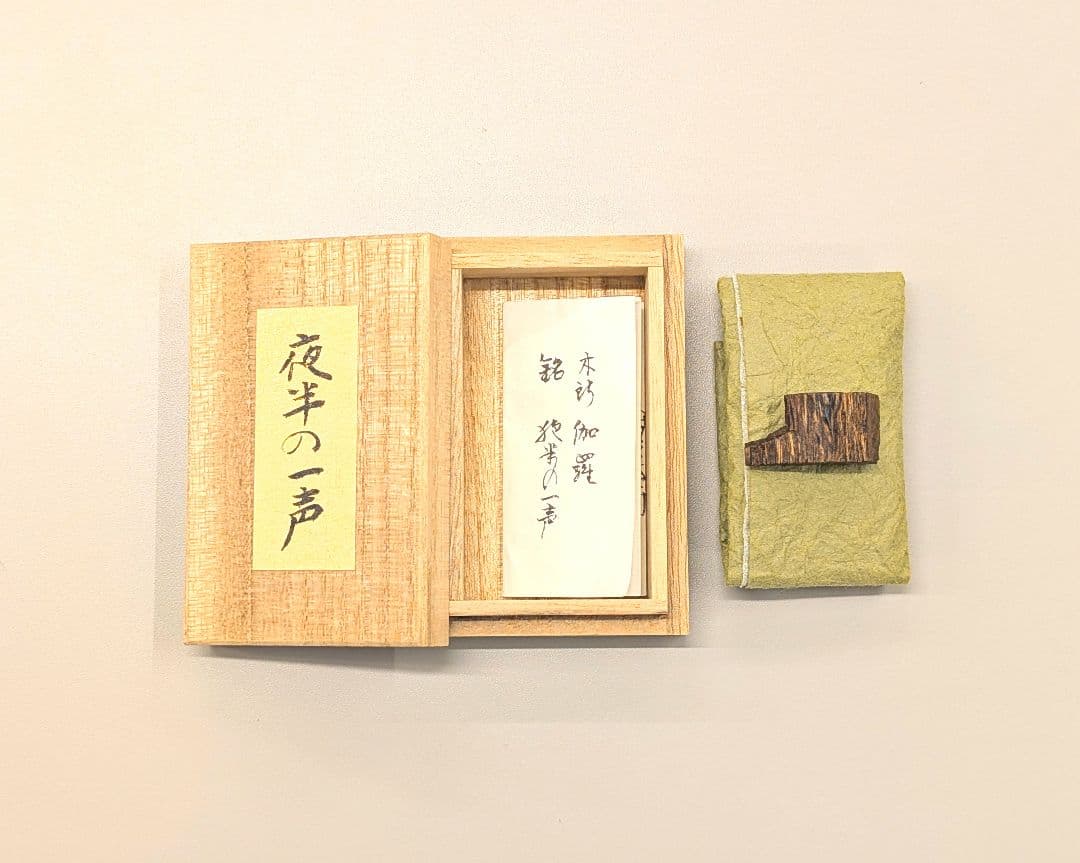 夜半の一声
木所 伽羅
銘 夜半の一声